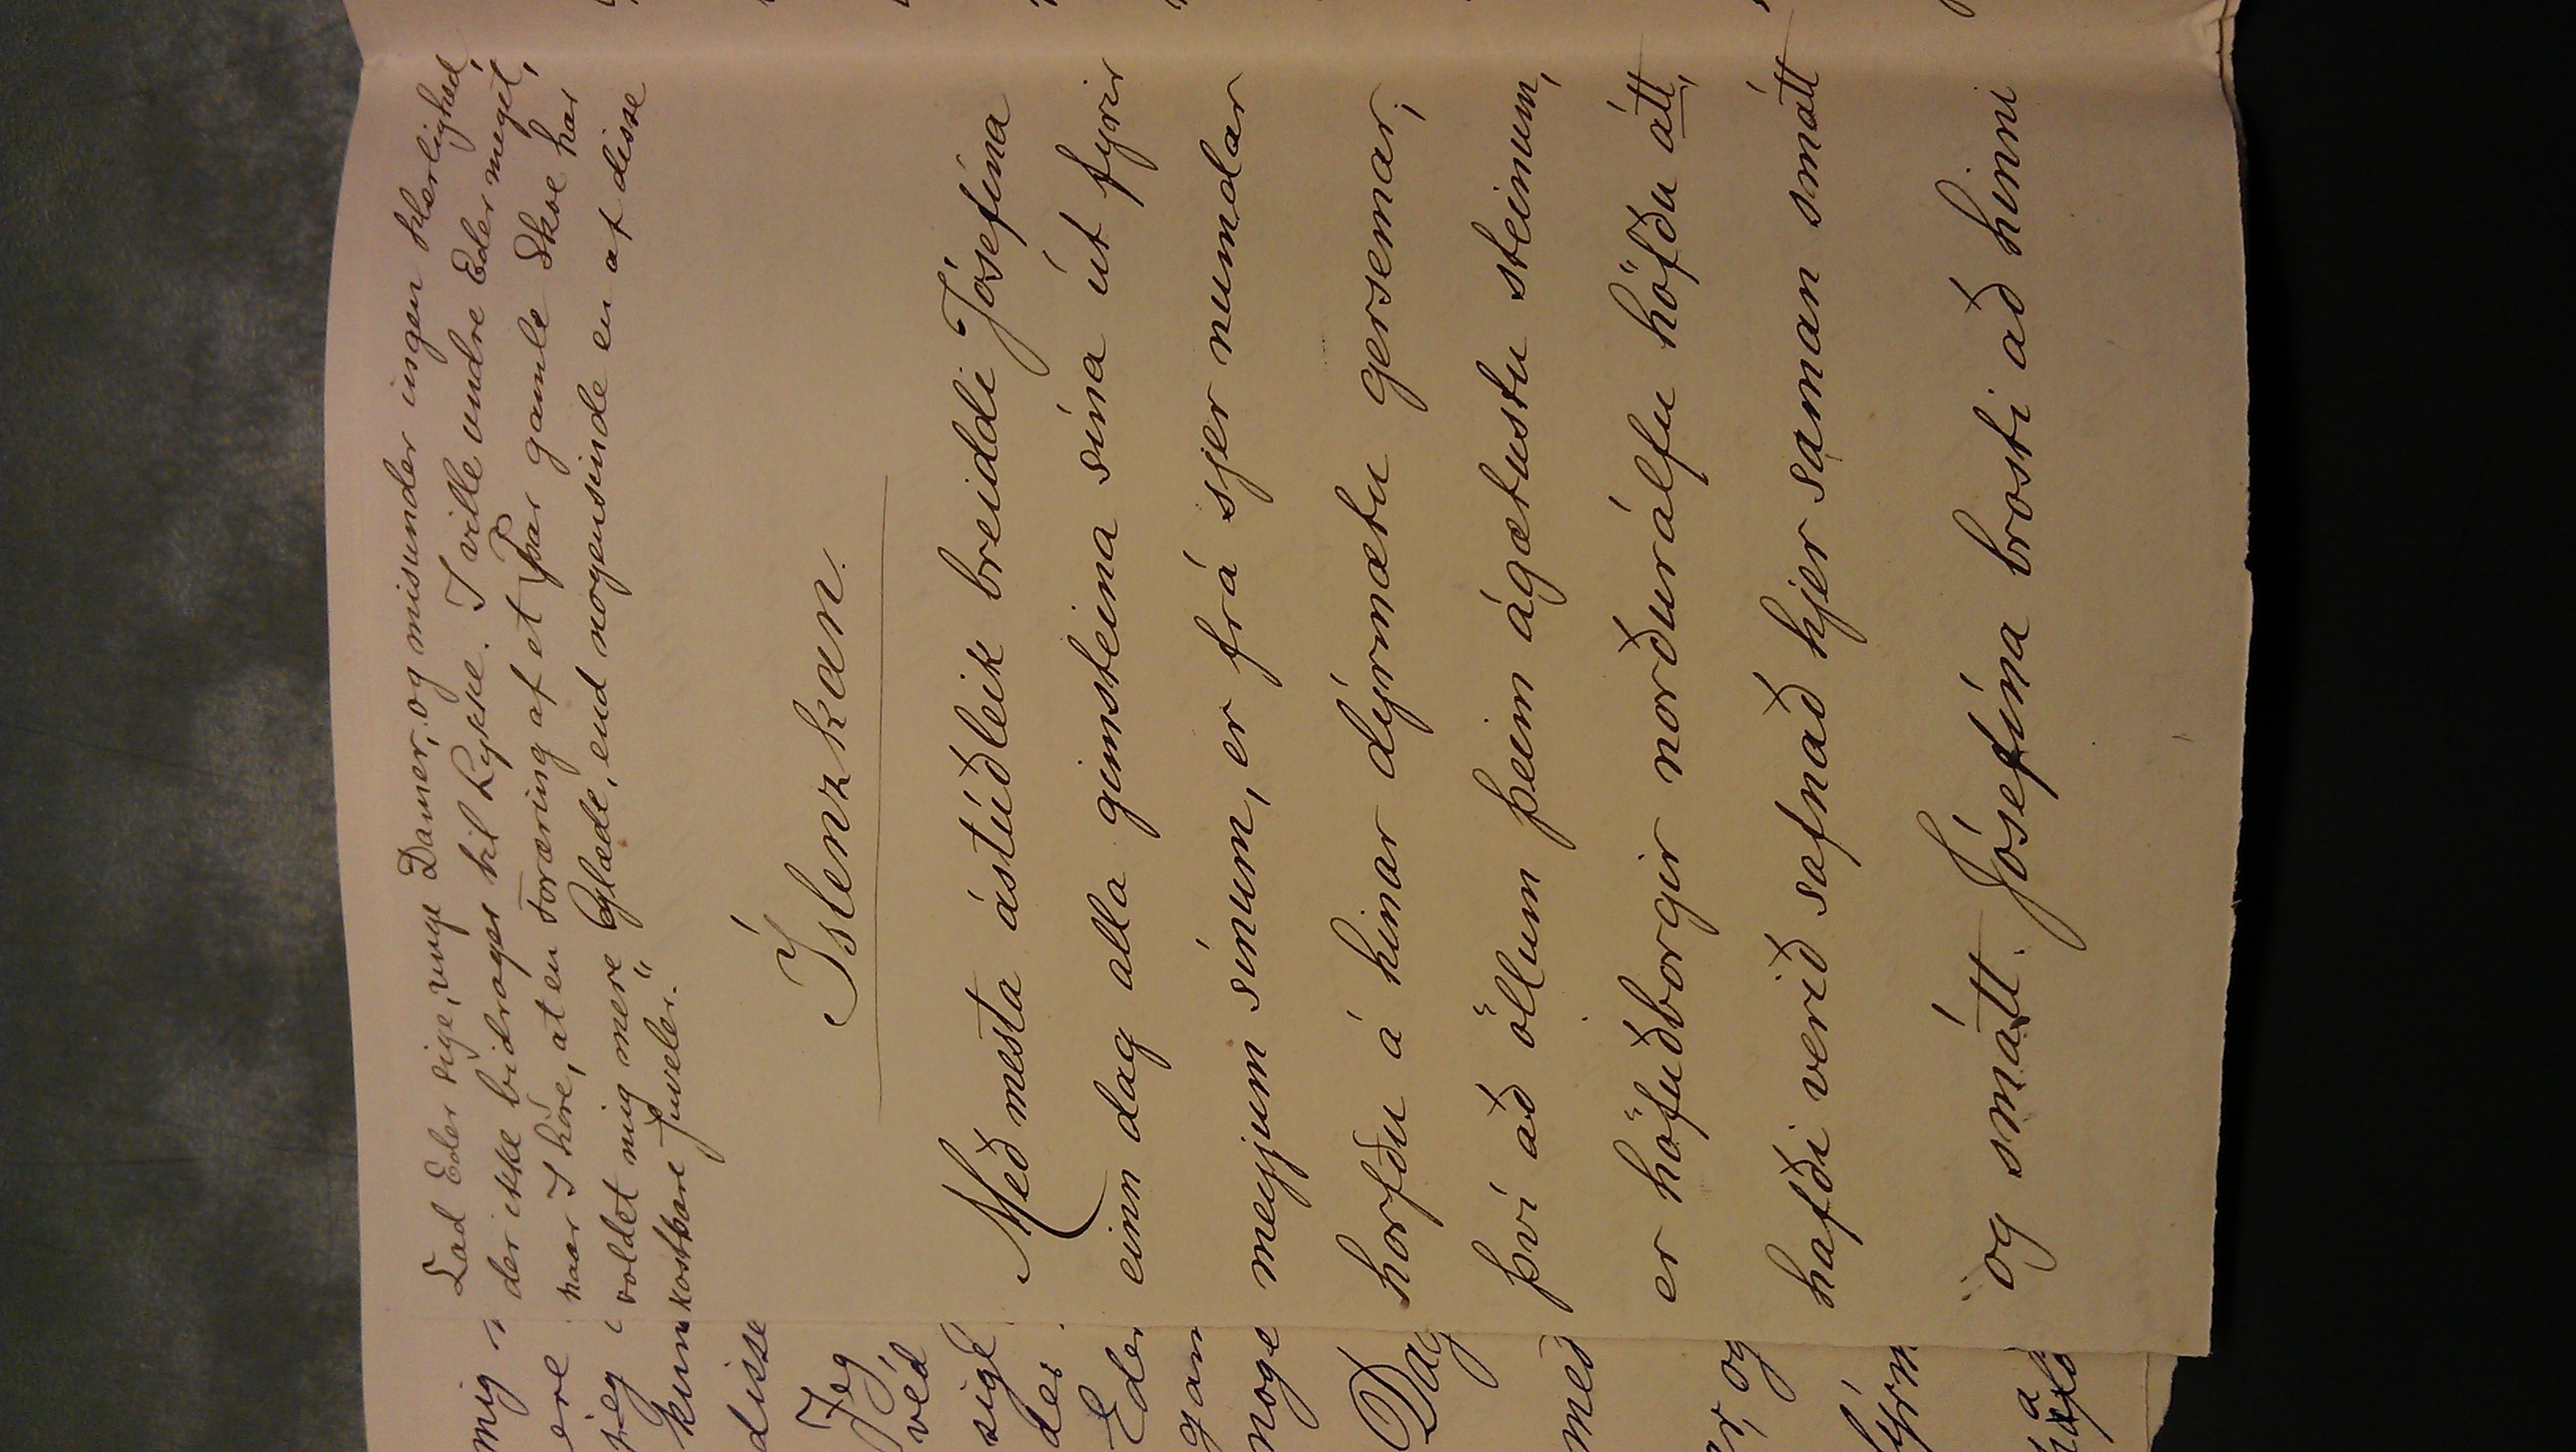 Lad Eder sige, unge Damer, og misunder ingen Herlighed,
der ikke bidrager til Lykke. I ville undre Eder meget,
naar I høre, at en Foræring af et Par gamle Skoe har
voldet mig mere Glæde, end nogensinde en af disse
kostbare Juveler."
Íslenzkan.
Með mesta ástúðleik breiddi Jósefína
einn dag alla gimsteina sína út fyrir
meyjum sínum, er frá sjer numdar
horfðu á hinar dýrmætu gersemar;
því að öllum þeim ágætustu steinum,
er höfuðborgir norðurálfu höfðu átt,
hafði verið safnað hjer saman smátt
og smátt. Jósefína brosti að hinni
mig
ere
jeg
kun
disse
Jeg
ved
sige
der
Eder
gam
noge
Dag
med
og